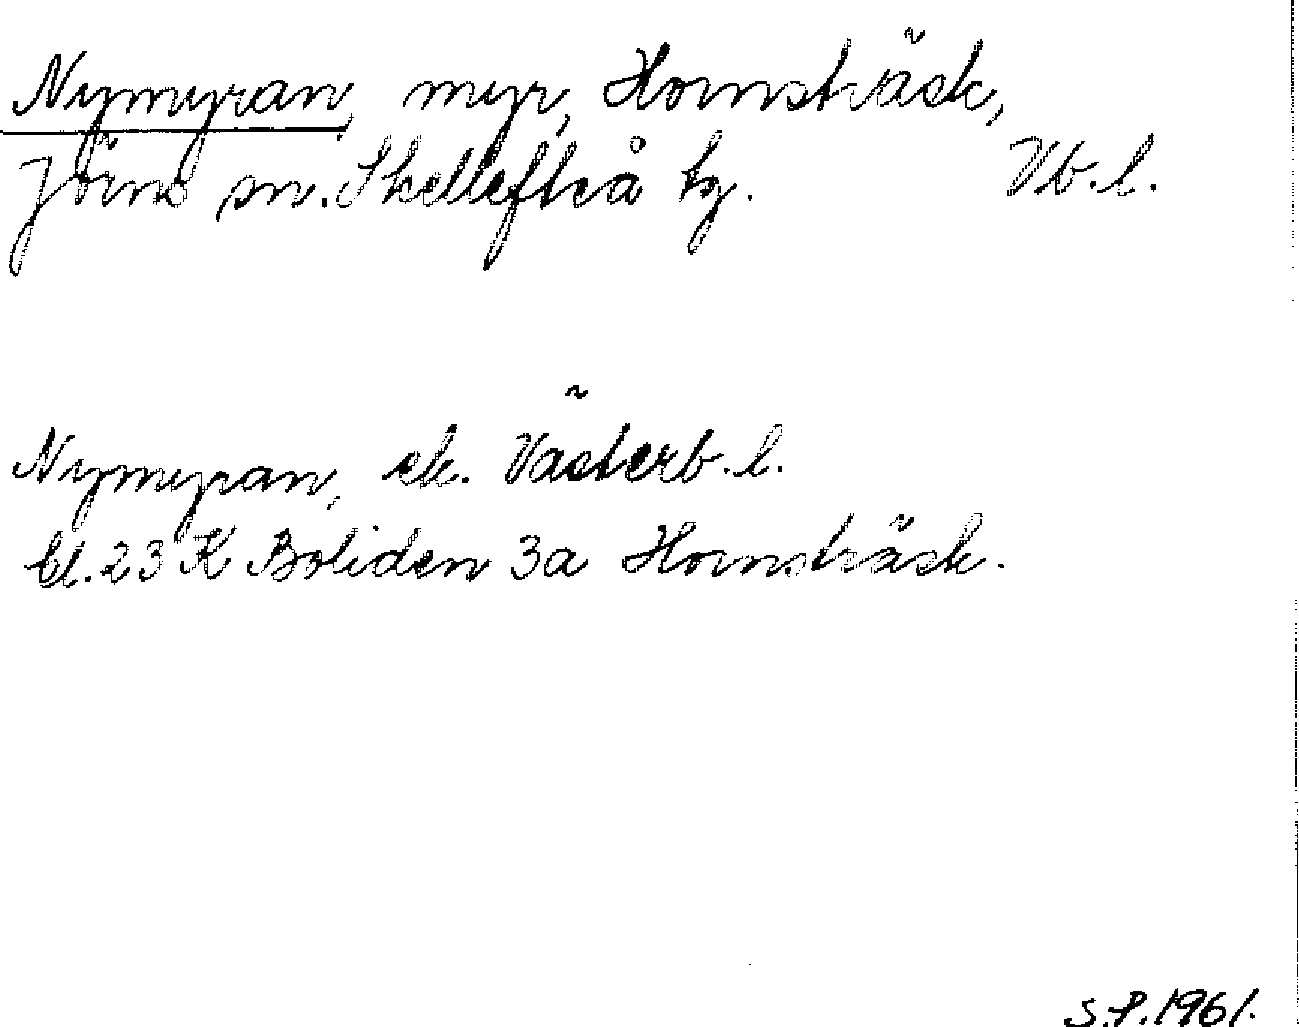 Nymyran, myr, Hornsträsk,
Jörns sn. Skellefteå tg. Vb.l.
Nymyran, ek. Västerb.l.
bl. 23 K Boliden 3a Hornsträsk.
S.P. 1961.